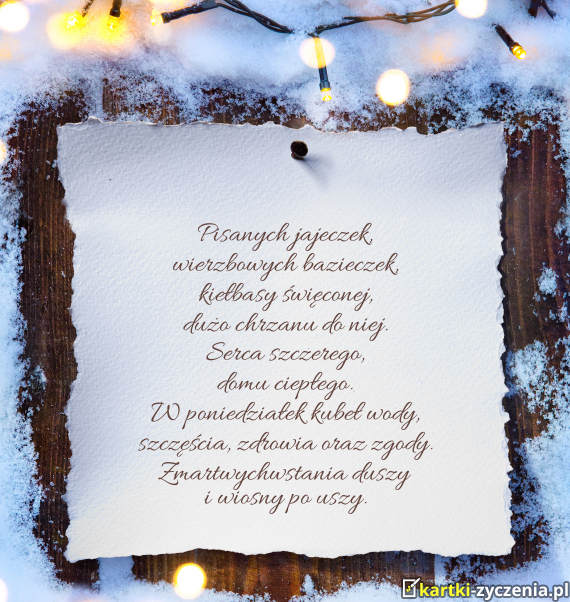 Pisanych jajeczek,
wierzbowych bazieczek,
kiełbasy święconej,
dużo chrzanu do niej.
Serca szczerego,
domu ciepłego.
W poniedziałek kubeł wody,
szczęścia, zdrowia oraz zgody.
Zmartwychwstania duszy
i wiosny po uszy.
kartki-zyczenia.pl